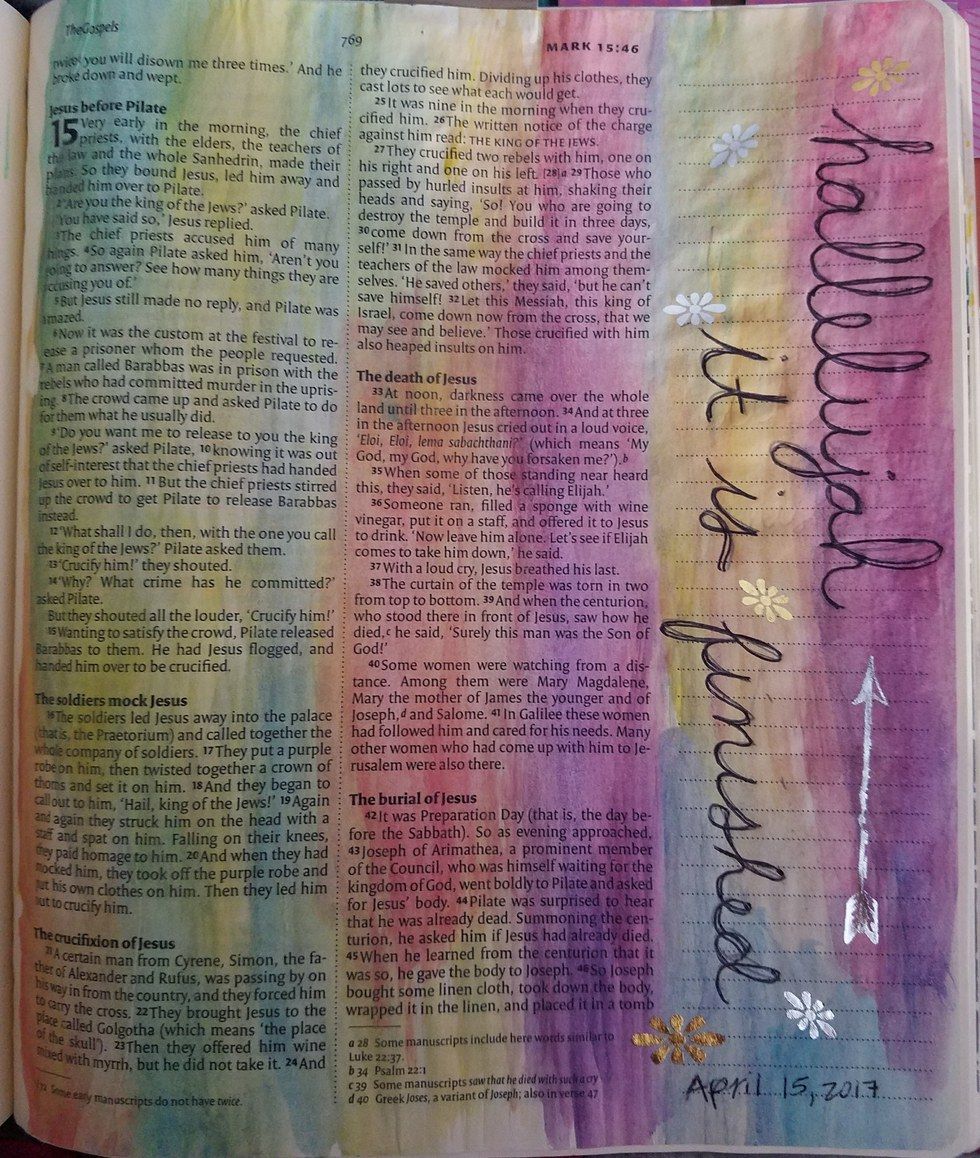 The Gospels
769
MARK 15:46
twice you will disown me three times.' And he
broke down and wept.
Jesus before Pilate
15 Very early in the morning, the chief
priests, with the elders, the teachers of
the law and the whole Sanhedrin, made their
plans. So they bound Jesus, led him away and
handed him over to Pilate.
2'Are you the king of the Jews?' asked Pilate.
'You have said so,' Jesus replied.
3The chief priests accused him of many
things. 4So again Pilate asked him, 'Aren't you
going to answer? See how many things they are
accusing you of.'
5But Jesus still made no reply, and Pilate was
amazed.
6Now it was the custom at the festival to re-
lease a prisoner whom the people requested.
7A man called Barabbas was in prison with the
rebels who had committed murder in the upris-
ing. 8The crowd came up and asked Pilate to do
for them what he usually did.
9'Do you want me to release to you the king
of the Jews?' asked Pilate, 10knowing it was out
of self-interest that the chief priests had handed
Jesus over to him. 11But the chief priests stirred
up the crowd to get Pilate to release Barabbas
instead.
12'What shall I do, then, with the one you call
the king of the Jews?' Pilate asked them.
13'Crucify him!' they shouted.
14'Why? What crime has he committed?'
asked Pilate.
But they shouted all the louder, 'Crucify him!'
15Wanting to satisfy the crowd, Pilate released
Barabbas to them. He had Jesus flogged, and
handed him over to be crucified.
The soldiers mock Jesus
16The soldiers led Jesus away into the palace
(that is, the Praetorium) and called together the
whole company of soldiers. 17They put a purple
robe on him, then twisted together a crown of
thorns and set it on him. 18And they began to
call out to him, 'Hail, king of the Jews!' 19Again
and again they struck him on the head with a
staff and spat on him. Falling on their knees,
they paid homage to him. 20And when they had
mocked him, they took off the purple robe and
put his own clothes on him. Then they led him
out to crucify him.
The crucifixion of Jesus
21A certain man from Cyrene, Simon, the fa-
ther of Alexander and Rufus, was passing by on
his way in from the country, and they forced him
to carry the cross. 22They brought Jesus to the
place called Golgotha (which means 'the place
of the skull'). 23Then they offered him wine
mixed with myrrh, but he did not take it. 24And
72 Some early manuscripts do not have twice.
they crucified him. Dividing up his clothes, they
cast lots to see what each would get.
25It was nine in the morning when they cru-
cified him. 26The written notice of the charge
against him read: THE KING OF THE JEWS.
27They crucified two rebels with him, one on
his right and one on his left. [28]a 29Those who
passed by hurled insults at him, shaking their
heads and saying, 'So! You who are going to
destroy the temple and build it in three days,
30come down from the cross and save your-
self!' 31In the same way the chief priests and the
teachers of the law mocked him among them-
selves. 'He saved others,' they said, 'but he can't
save himself! 32Let this Messiah, this king of
Israel, come down now from the cross, that we
may see and believe.' Those crucified with him
also heaped insults on him.
The death of Jesus
33At noon, darkness came over the whole
land until three in the afternoon. 34And at three
in the afternoon Jesus cried out in a loud voice,
'Eloi, Eloi, lema sabachthani?' (which means 'My
God, my God, why have you forsaken me?').b
35When some of those standing near heard
this, they said, 'Listen, he's calling Elijah.'
36Someone ran, filled a sponge with wine
vinegar, put it on a staff, and offered it to Jesus
to drink. 'Now leave him alone. Let's see if Elijah
comes to take him down,' he said.
37With a loud cry, Jesus breathed his last.
38The curtain of the temple was torn in two
from top to bottom. 39And when the centurion,
who stood there in front of Jesus, saw how he
died,c he said, 'Surely this man was the Son of
God!'
40Some women were watching from a dis-
tance. Among them were Mary Magdalene,
Mary the mother of James the younger and of
Joseph,d and Salome. 41In Galilee these women
had followed him and cared for his needs. Many
other women who had come up with him to Je-
rusalem were also there.
The burial of Jesus
42It was Preparation Day (that is, the day be-
fore the Sabbath). So as evening approached,
43Joseph of Arimathea, a prominent member
of the Council, who was himself waiting for the
kingdom of God, went boldly to Pilate and asked
for Jesus' body. 44Pilate was surprised to hear
that he was already dead. Summoning the cen-
turion, he asked him if Jesus had already died.
45When he learned from the centurion that it
was so, he gave the body to Joseph. 46So Joseph
bought some linen cloth, took down the body,
wrapped it in the linen, and placed it in a tomb
a 28 Some manuscripts include here words similar to
Luke 22:37.
b 34 Psalm 22:1
c 39 Some manuscripts saw that he died with such a cry
d 40 Greek Joses, a variant of Joseph; also in verse 47
hallelujah
it is finished
April 15, 2017